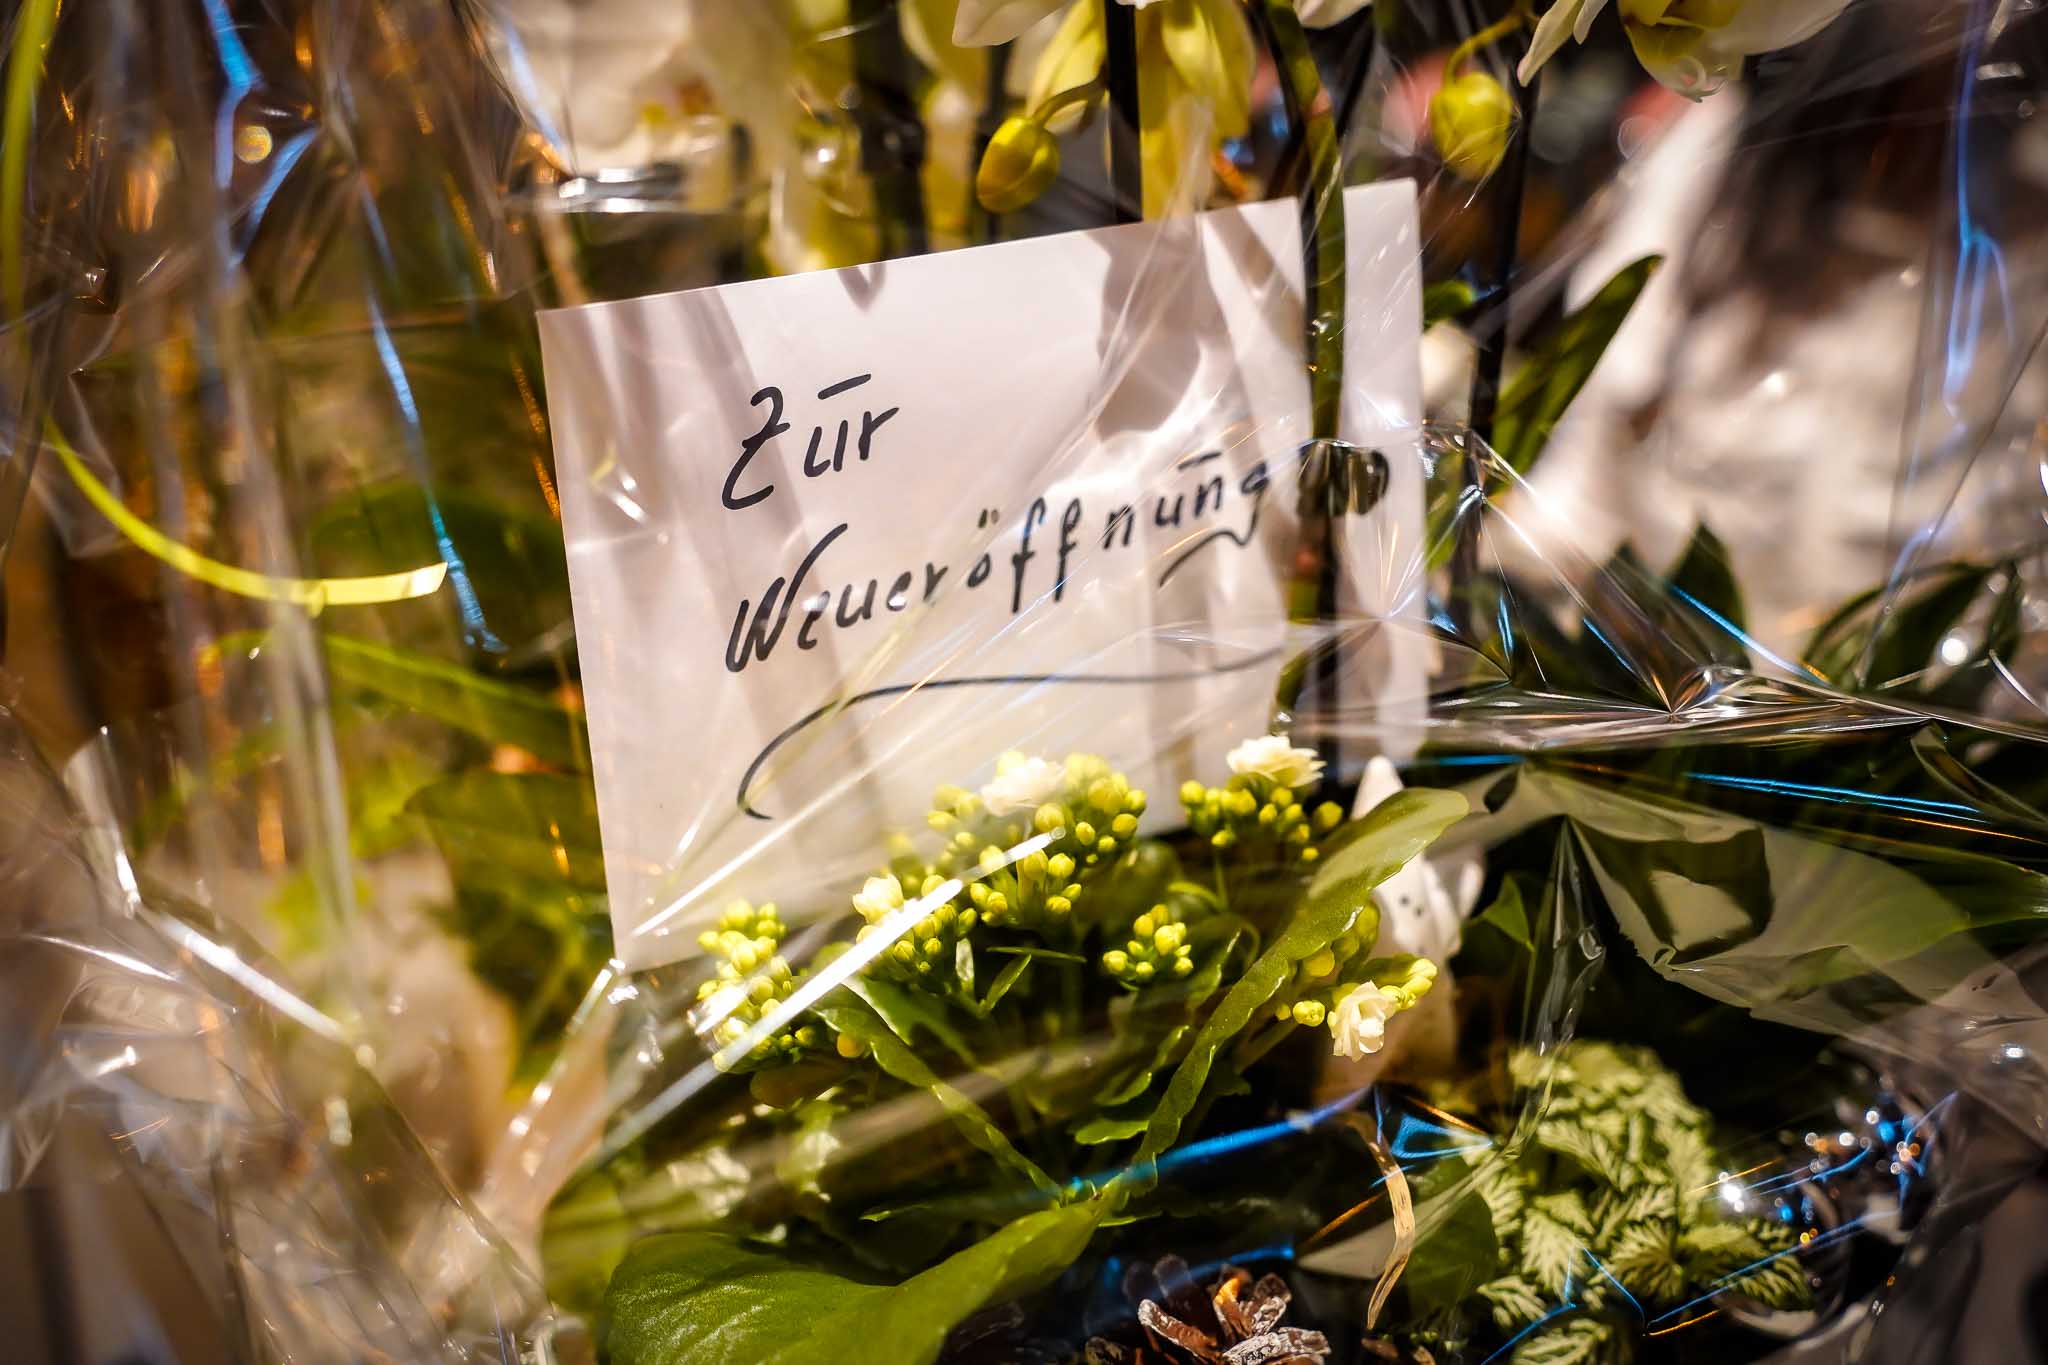 Zur
Neueröffnung